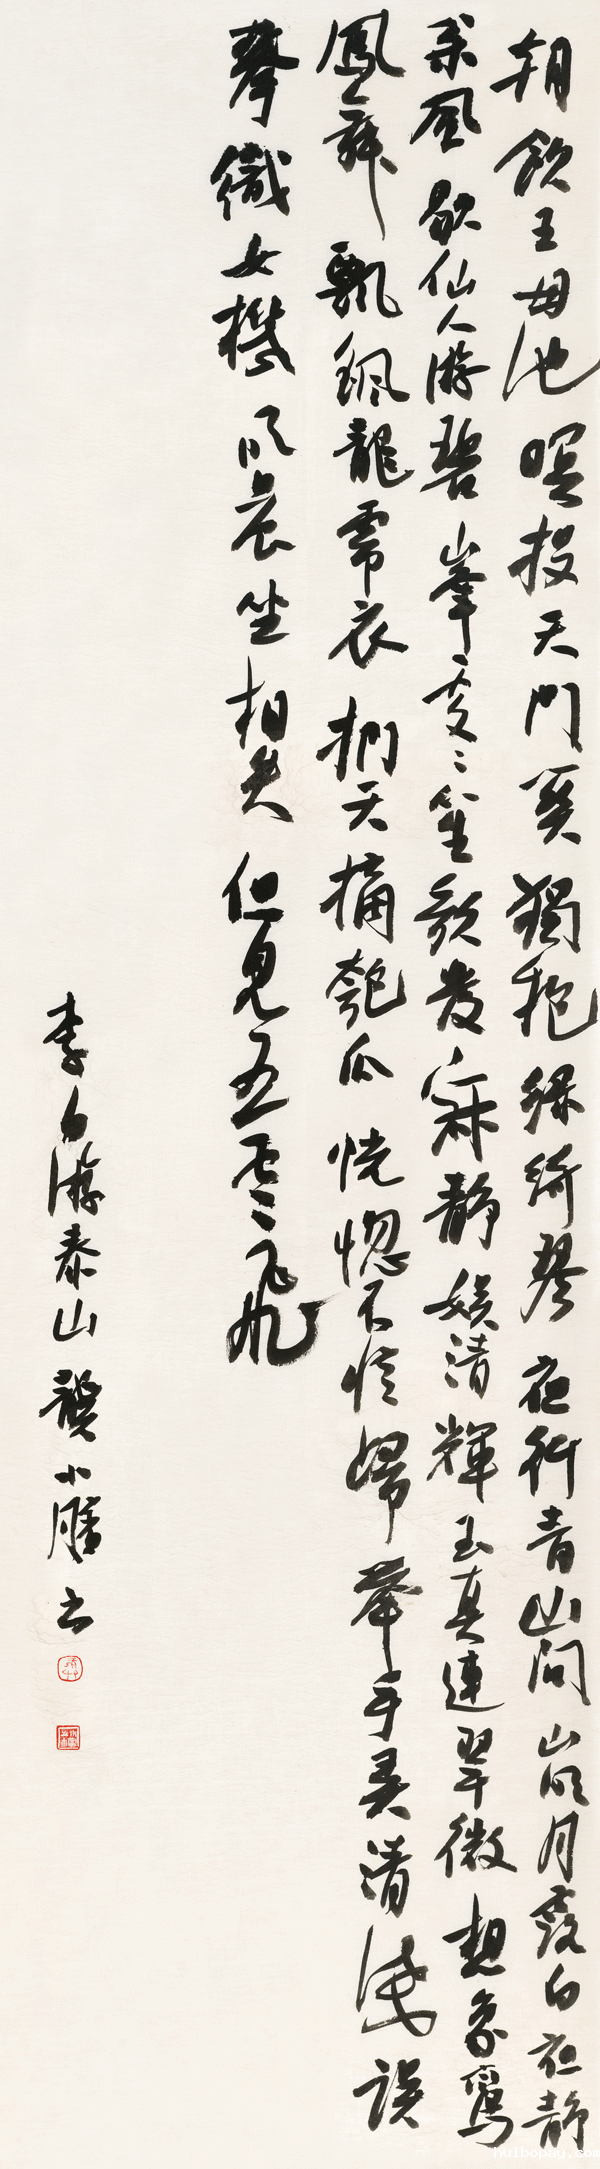 朝飲王母池暝投天門關獨抱綠綺琴夜行青山間山明月露白夜静
松風歇仙人游碧峯處處笙歌發寂静娛清輝玉真連翠微想象鸞
鳳舞飄飖龍虎衣捫天摘匏瓜恍惚不憶歸舉手弄清淺誤
攀織女機明晨坐相失但見五雲飛
李白游泰山 龔小书
huibopay.com